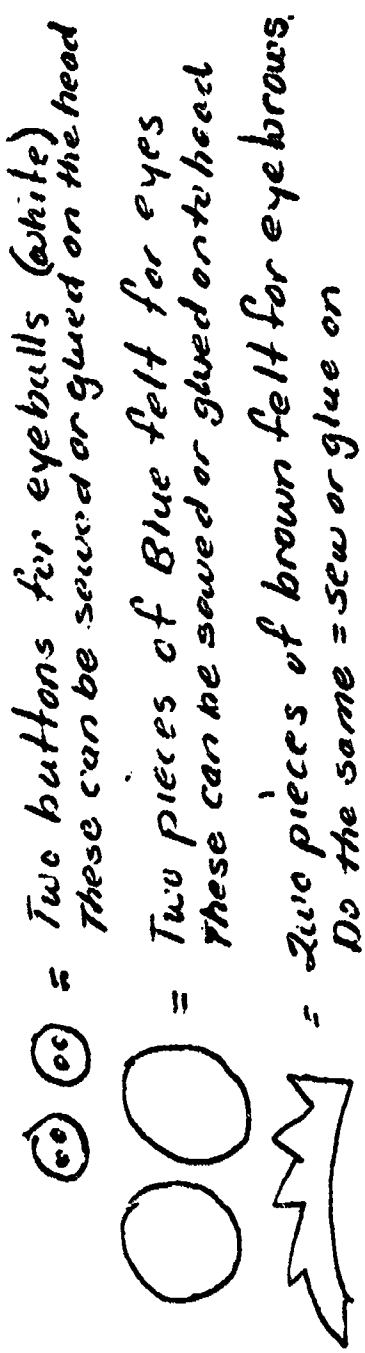 = Two buttons for eyeballs (white)
These can be sewed or glued on the head
= Two pieces of Blue felt for eyes
These can be sewed or glued onto head
= Two pieces of brown felt for eyebrows.
Do the same = sew or glue on